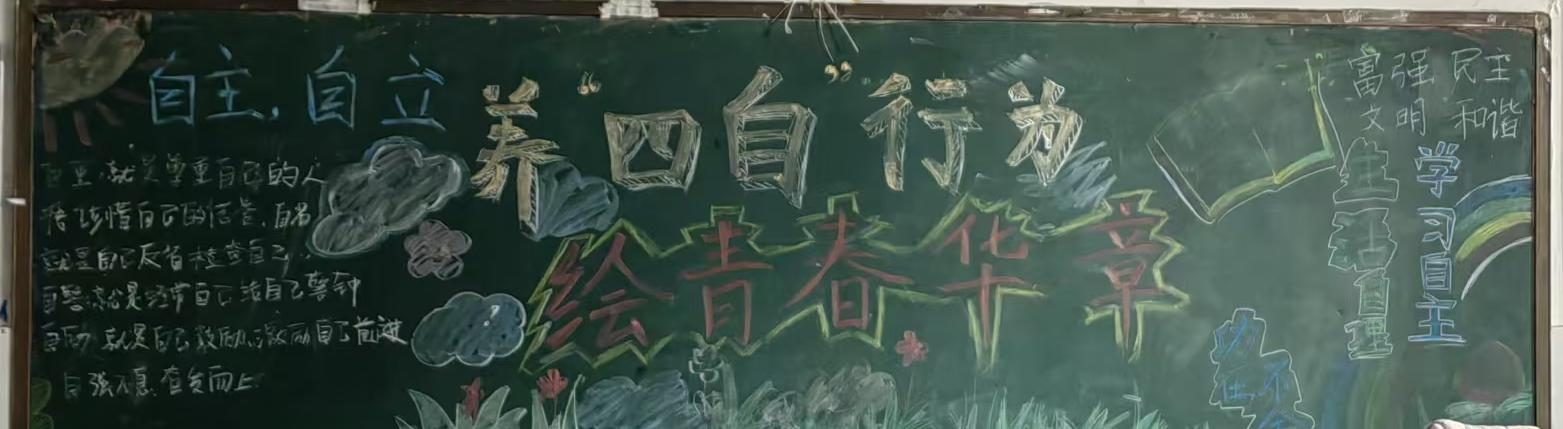 自主，自立
养“四自”行为
绘青春华章
自重，就是尊重自己的人
格，珍惜自己的信誉，自省
就是自己反省检查自己
自警，就是经常自己给自己警钟
自励，就是自己鼓励，激励自己前进
自强不息，奋发而上
富强 民主
文明 和谐
生活自理
学习自主